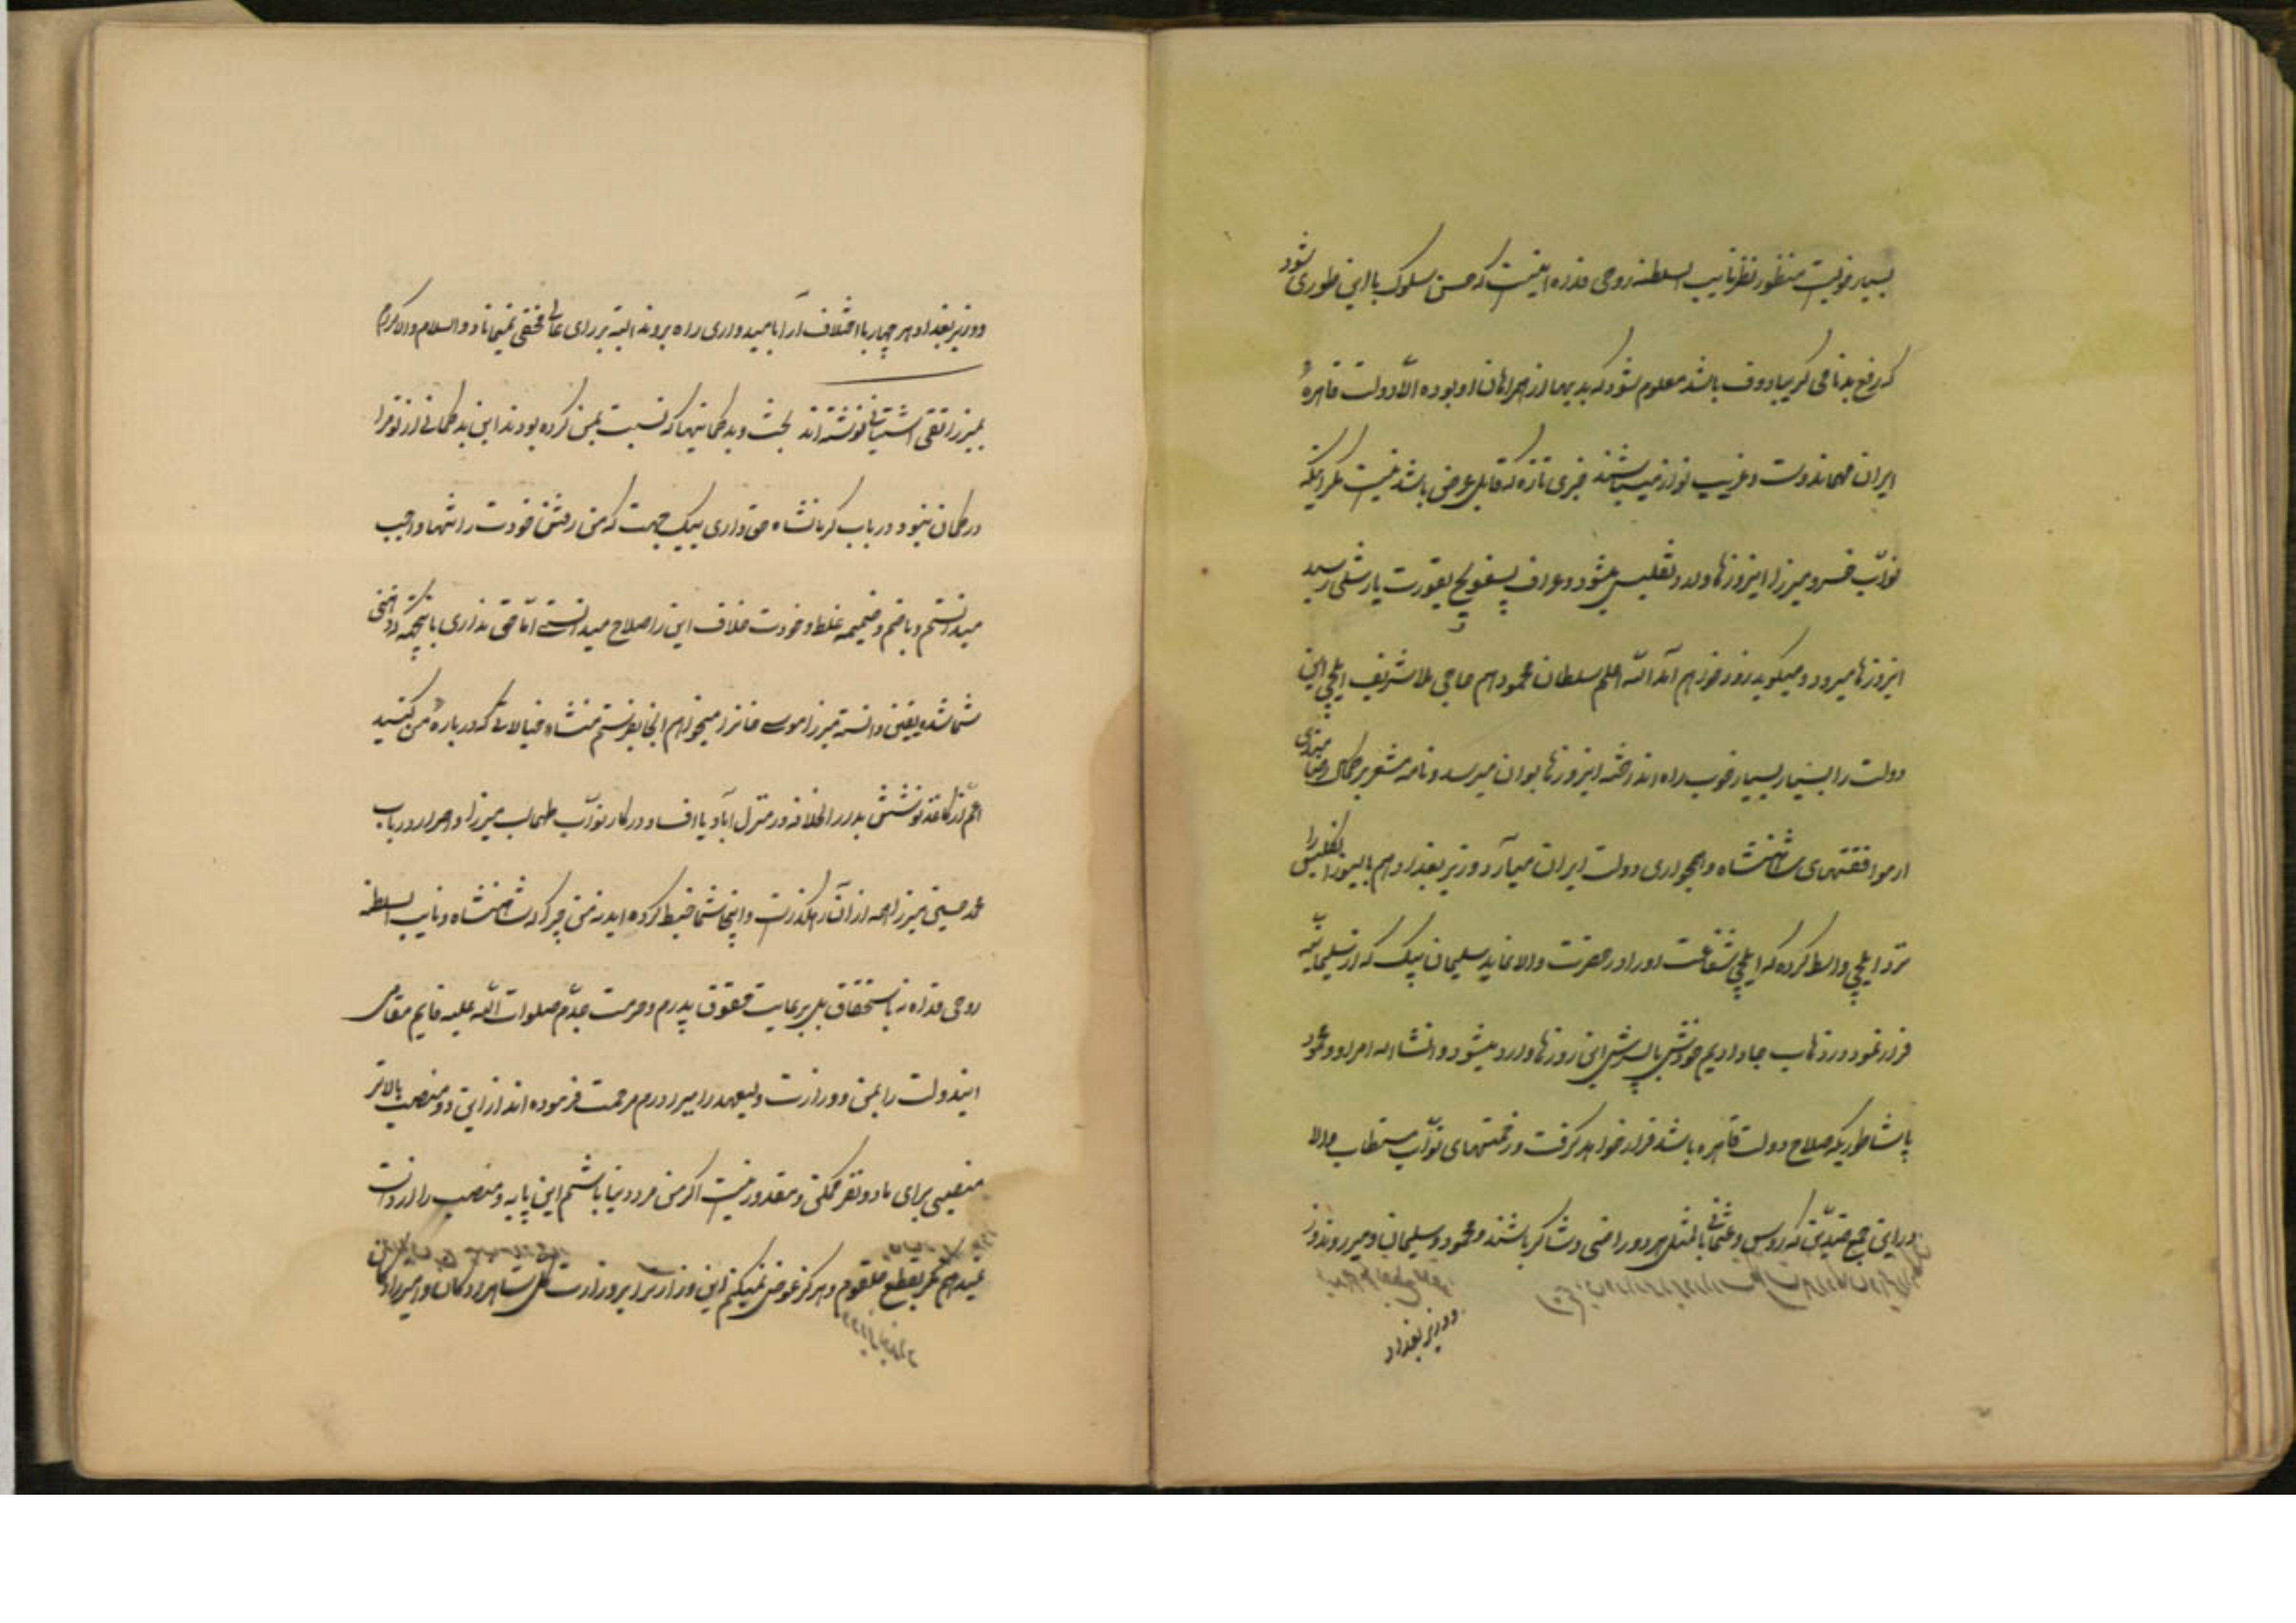 بسیار خوبست منظور نظر نایب السلطنه روحی فداه اینست که حسن سلوک با این طوری شود
که رفع بدنامی کریبایدوف باشد معلوم شود که بدیها از همراهان او بوده الا دولت قاهرهٔ
ایران مهماندوست و غریب نواز میباشند خبری تازه که قابل عرض باشد نیست مگر اینکه
نواب خسرو میرزا اینروزها وارد تفلیس میشود و غراف پسقویچ بقورت یارشلی رسید
اینروزها میرود و میگوید زود خواهم آمد الله اعلم سلطان محمود هم حاجی ملا شریف ایلچی این
دولت را بسیار بسیار خوب راه انداخته اینروزها بوان میرسد و نامه مشعر بر کمال رضامندی
از موافقتهای شاهنشاه و همجواری دولت ایران میآرد وزیر بغداد هم بالیوز انگلیس را
نزد ایلچی واسط کرده که ایلچی شفاعت او را در حضرت والا نماید سلیمان بیک که از سلیمانیه
فرار نمود در ذهاب جا دادیم خودش با پسرش این روزها وارد میشود و انشاءالله امر او و محمود
پاشا طوریکه صلاح دولت قاهره باشد قرار خواهد گرفت و زحمتهای نواب مستطاب والا
در این جمع ضدین که روس و عثمانی بالمثل هر دو راضی و شاکر باشند و محمود و سلیمان و میر رواندوز
و وزیر بغداد
و وزیر بغداد و هر چهار با اختلاف آرا بامیدواری راه بروند البته بر رای عالی مخفی نمیماناد والسلام والاکرام
بمیرزا تقی آشتیانی نوشته‌اند بحث و بدگمانیها که نسبت بمن کرده بودند این بدگمانی از تو مرا
در گمان نبود در باب کرمانشاه حق داری بیک جهت که من رفتن خودت را تنها واجب
میدانستم و با ضم و ضمیمه غلط و خودت خلاف این را صلاح میدانستی اما حق نداری با نیکه در ذهنی
شما شده یقین دانسته میرزا موسی خانرا میخواهم آنجا بفرستم منشاء خیالاتی که درباره من کنید
اعم از کاغذ نوشتن بدار الخلافه در منزل آباد یا افساد در کار نواب طهماسب میرزا و اصرار در باب
محمد حسین میرزا همه از آن رهگذر است و اینجا شما خبط کرده‌اید نه من چرا که شاهنشاه و نایب السلطنه
روحی فداه نه باستحقاق بل برعایت حقوق پدرم و حرمت جدم صلوات الله علیه قایم مقامی
ایندولت را بمن و وزارت ولیعهد را ببرادرم مرحمت فرموده‌اند از این دو منصب بالاتر
منصبی برای ما دو نفر ممکن و مقدور نیست اگر من مرد دنیا باشم این پایه و منصب را از دست
نمیدهم مگر بقطع حلقوم و هرگز عوض نمیکنم این وزارت را بر وزارت کل شاهزادگان و امیرزادگان